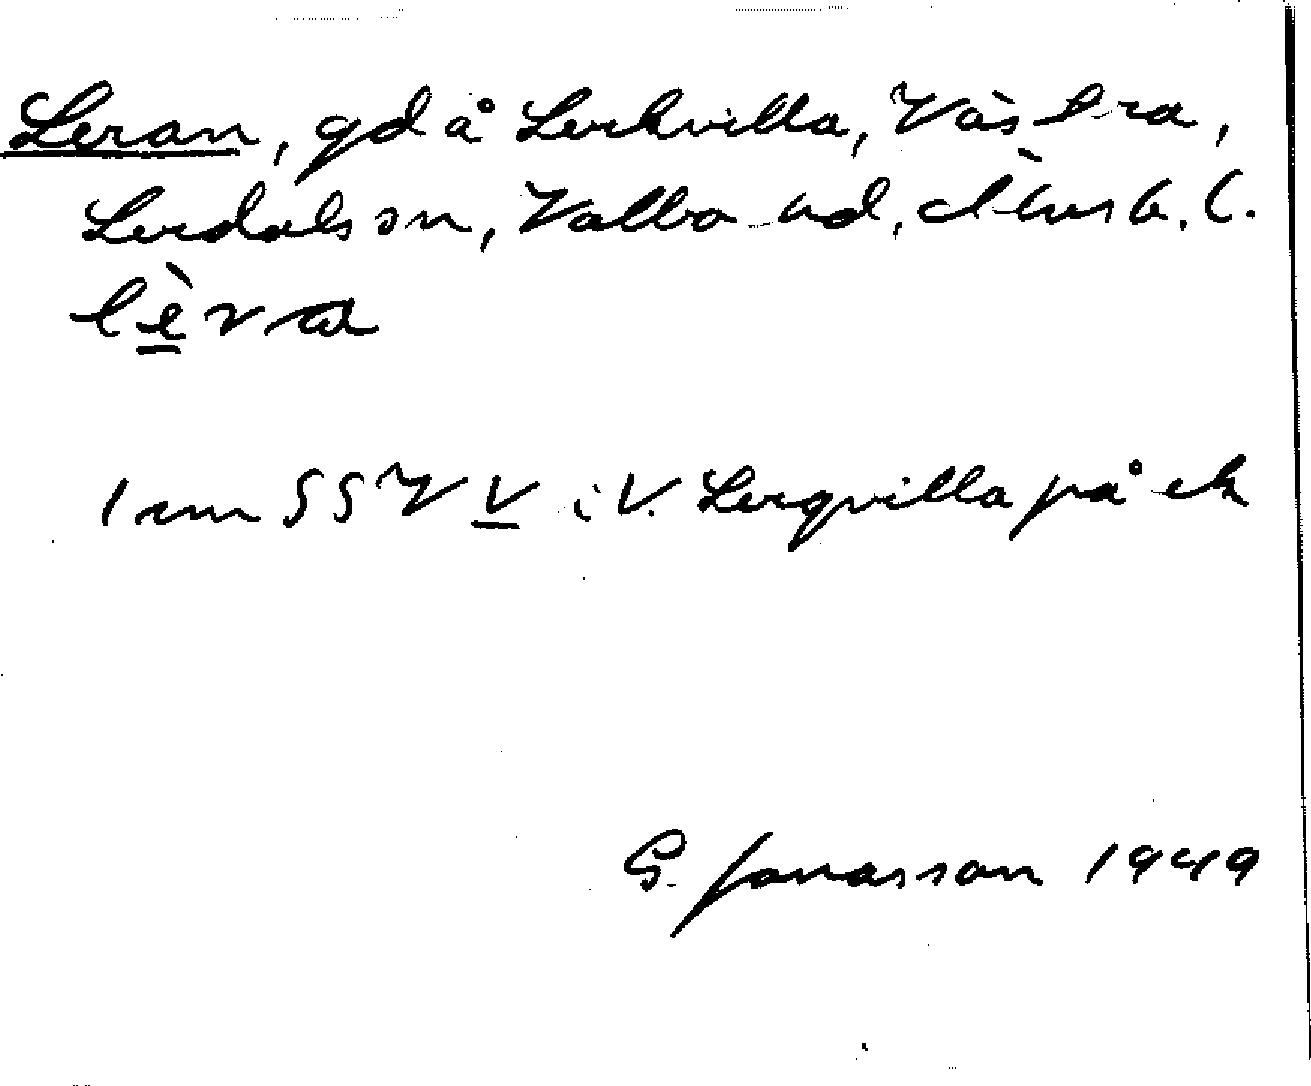 Leran, gd å Lerkvilla, Västra,
Lerdals sn, Valbo hd, Älvsb. l.
lèra
1 cm SSV V i V. Lerqvilla på ek
G. Jonasson 1949